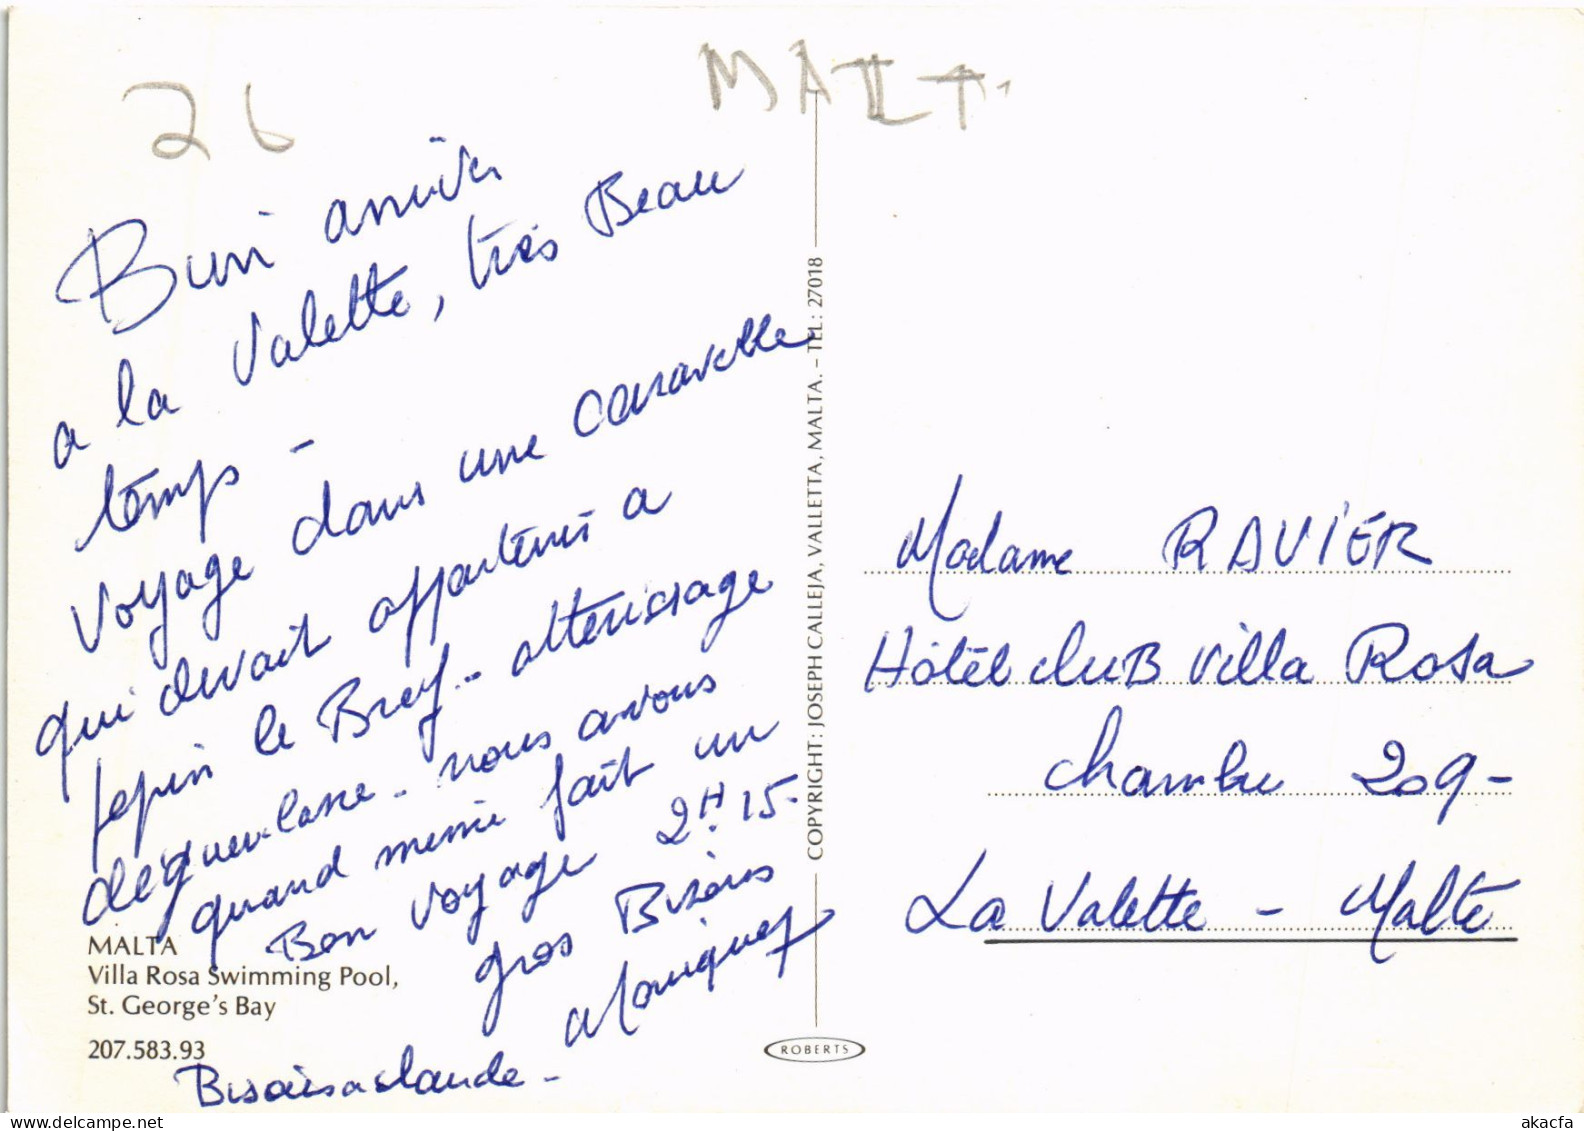 26
MALT
Bien arrivés
a la Valette, très Beau
temps -
Voyage dans une caravelle
qui devait appartenir a
Pepin le Bref - atterissage
nous avons
quand même fait un
Bon voyage 2H15.
gros Bisous
Monique
Bisous a claude -
MALTA
Villa Rosa Swimming Pool,
St. George's Bay
207.583.93
COPYRIGHT: JOSEPH CALLEJA, VALLETTA, MALTA. – TEL: 27018
ROBERTS
Madame RAVIER
Hôtel cluB villa Rosa
chambre 209 -
La Valette - Malte
delcampe.net
akacfa